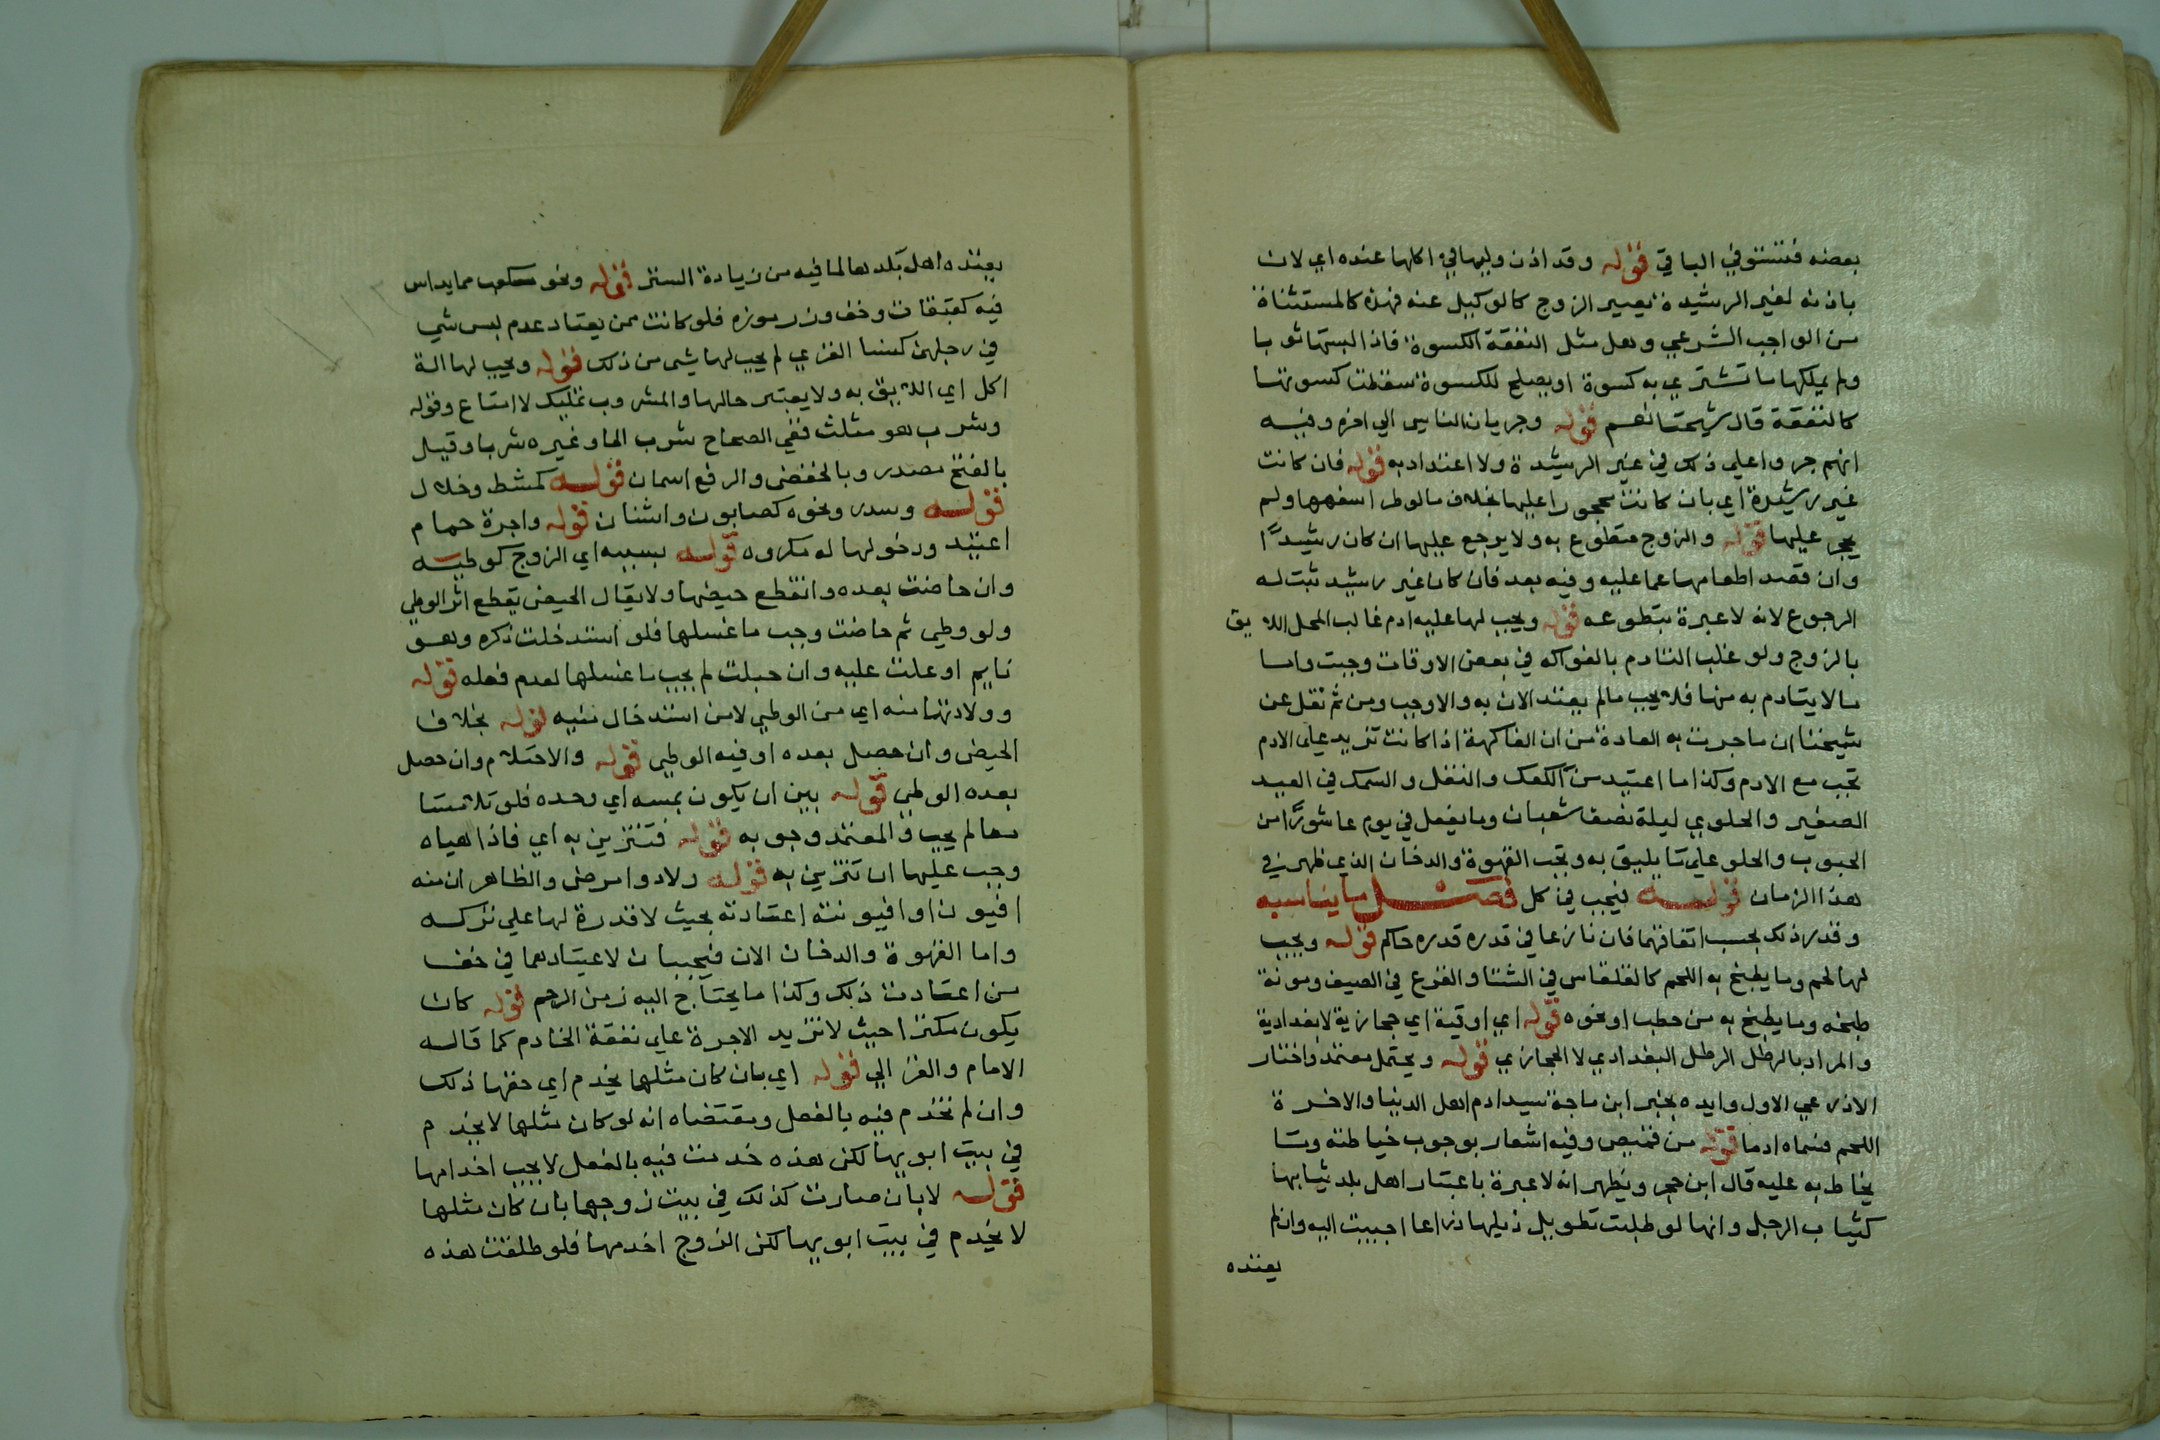 بعضه فتستوفي الباقي قوله وقد اذن وليها في اكلها عنده اي لان
باذنه لغير الرشيدة يصير الزوج كالوكيل عنه فهذه كالمستثناة
من الواجب الشرعي وهل مثل النفقة الكسوة فاذا البستها ثوبا
ولم يملكها ما تشتري به كسوة او يصلح للكسوة سقطت كسوتها
كالنفقة قال شيخنا نعم قوله وجريان الناس الي اخره وفيه
انهم جروا علي ذلك في غير الرشيدة ولا اعتداد به قوله فان كانت
غير رشيدة اي بان كانت محجورا عليها بخلاف ما لو طرا سفهها ولم
يحجر عليها قوله والزوج متطوع به ولا يرجع عليها ان كان رشيدًا
وان قصد اطعامها عما عليه وفيه بعد فان كان غير رشيد ثبت له
الرجوع لانه لا عبرة بتطوعه قوله ويجب لها عليه ادم غالب المحل اللايق
بالزوج ولو غلب التادم بالفواكه في بعض الاوقات وجبت واما
ما لا يتادم به منها فلا يجب ما لم يعتد الان به والاوجب ومن ثم نقل عن
شيخنا ان ما جرت به العادة من ان الفاكهة اذا كانت تزيد علي الادم
تجب مع الادم وكذا ما اعتيد من الكعك والنقل والسمك في العيد
الصغير والحلوي ليلة نصف شعبان وما يفعل في يوم عاشورًا من
الحبوب والحلو علي ما يليق به وتجب القهوة والدخان الذي ظهر في
هذا الزمان قوله فيجب في كل فصل ما يناسبه
وقدر ذلك بحسب اتفاقهما فان نازعا في قدره قدره حاكم قوله ويجب
لها لحم وما يطبخ به اللحم كالقلقاس في الشتا والقرع في الصيف ومونة
طبخه وما يطبخ به من حطب او نحوه قوله اي اوقية اي حجازية لا بغدادية
والمراد بالرطل الرطل البغدادي لا الحجازي قوله ويحتمل معتمد واختار
الاذرعي الاول وايده بخبر ابن ماجة سيد ادم اهل الدنيا والاخرة
اللحم فسماه ادما قوله من قميص وفيه اشعار بوجوب خياطته وما
يخاط به عليه قال ابن حجر ويظهر انه لا عبرة باعتبار اهل بلد ثيابها
كثياب الرجل وانها لو طلبت تطويل ذيلها ذراعا اجيبت اليه وان لم
يعتده
يعتده اهل بلدها لما فيه من زيادة الستر قوله ونحو مكعب مما يداس
فيه كقبقاب وخف وزرموزه فلو كانت ممن يعتاد عدم لبس شي
في رجلهن كنسا القري لم يجب لها شي من ذلك قوله ويجب لها الة
اكل اي اللايق به ولا يعتبر حالها والمشروب تمليك لا امتاع وقوله
وشرب هو مثلث ففي الصحاح شرب الما وغيره شربا وقيل
بالفتح مصدر وبالخفض والرفع اسمان قوله كمشط وخلال
قوله وسدر ونحوه كصابون واشنان قوله واجرة حمام
اعتيد ودخولها له مكروه قوله بسببه اي الزوج كوطيه
وان حاضت بعده وانقطع حيضها ولا يقال الحيض يقطع اثر الوطي
ولو وطي ثم حاضت وجب ما غسلها فلو استدخلت ذكره وهو
نايم او علت عليه وان حبلت لم يجب ما غسلها لعدم فعله قوله
وولادتها منه اي من الوطي لا من استدخال منيه قوله بخلاف
الحيض وان حصل بعده او فيه الوطي قوله والاحتلام وان حصل
بعده الوطي قوله بين ان يكون بمسه اي وحده فلو تلامسا
معا لم يجب والمعتمد وجوبه قوله فتتزين به اي فاذا هياه
وجب عليها ان تتزين به قوله ولا دوا مرض والظاهر ان منه
افيون او افيونته اعتادته بحيث لا قدرة لها علي تركه
واما القهوة والدخان الان فيجبان لاعتيادهما في حق
من اعتادت ذلك وكذا ما يحتاج اليه زمن الوحم قوله كان
يكون مكترا حيث لا تزيد الاجرة علي نفقة الخادم كما قاله
الامام والغزالي قوله اي بان كان مثلها يخدم اي حقها ذلك
وان لم تخدم فيه بالفعل ومقتضاه انه لو كان مثلها لا يخدم
في بيت ابويها لكن هذه خدمت فيه بالفعل لا يجب اخدامها
قوله لا بان صارت كذلك في بيت زوجها بان كان مثلها
لا يخدم في بيت ابويها لكن الزوج اخدمها فلو طلقت هذه